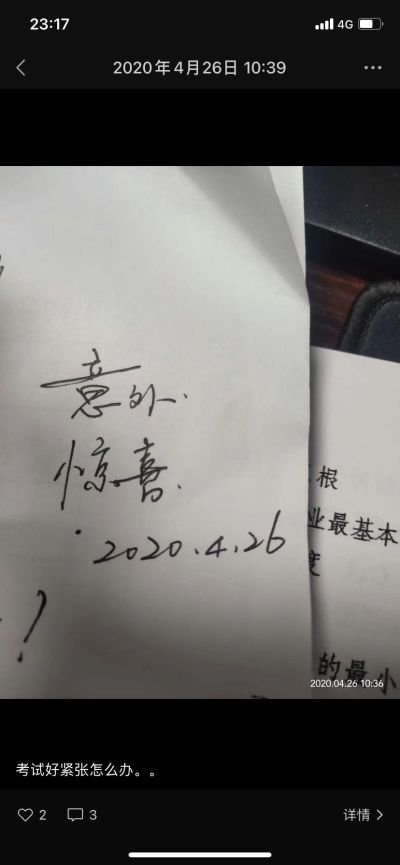 23:17
4G
2020年4月26日 10:39
意外.
惊喜.
2020.4.26
!
根
业最基本
度
的最小
2020.04.26 10:36
考试好紧张怎么办。。
2
3
详情